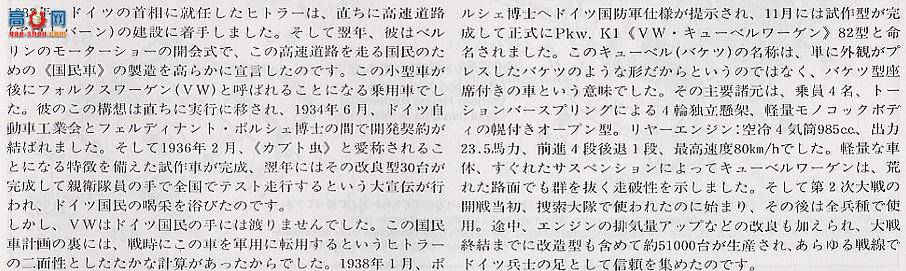 ドイツの首相に就任したヒトラーは、直ちに高速道路
の建設に着手しました。そして翌年、彼はベル
リンのモーターショーの開会式で、この高速道路を走る国民のた
めの《国民車》の製造を高らかに宣言したのです。この小型車が
後にフォルクスワーゲン(VW)と呼ばれることになる乗用車でし
た。彼のこの構想は直ちに実行に移され、1934年6月、ドイツ自
動車工業会とフェルディナント・ポルシェ博士の間で開発契約が
結ばれました。そして1936年2月、《カブト虫》と愛称されるこ
とになる特徴を備えた試作車が完成、翌年にはその改良型30台が
完成して親衛隊員の手で全国でテスト走行するという大宣伝が行
われ、ドイツ国民の喝采を浴びたのです。
しかし、VWはドイツ国民の手には渡りませんでした。この国民
車計画の裏には、戦時にこの車を軍用に転用するというヒトラー
の二面性としたたかな計算があったからでした。1938年1月、ポ
ルシェ博士へドイツ国防軍仕様が提示され、11月には試作型が完
成して正式にPkw. K1《VW・キューベルワーゲン》82型と命
名されました。このキューベル(バケツ)の名称は、単に外観がプ
レスしたバケツのような形だからというのではなく、バケツ型座
席付きの車という意味でした。その主要諸元は、乗員4名、トー
ションバースプリングによる4輪独立懸架、軽量モノコックボデ
ィの幌付きオープン型。リヤーエンジン:空冷4気筒985cc、出力
23.5馬力、前進4段後退1段、最高速度80km/hでした。軽量な車
体、すぐれたサスペンションによってキューベルワーゲンは、荒
れた路面でも群を抜く走破性を示しました。そして第2次大戦の
開戦当初、捜索大隊で使われたのに始まり、その後は全兵種で使
用。途中、エンジンの排気量アップなどの改良も加えられ、大戦
終結までに改造型も含めて約51000台が生産され、あらゆる戦線で
ドイツ兵士の足として信頼を集めたのです。